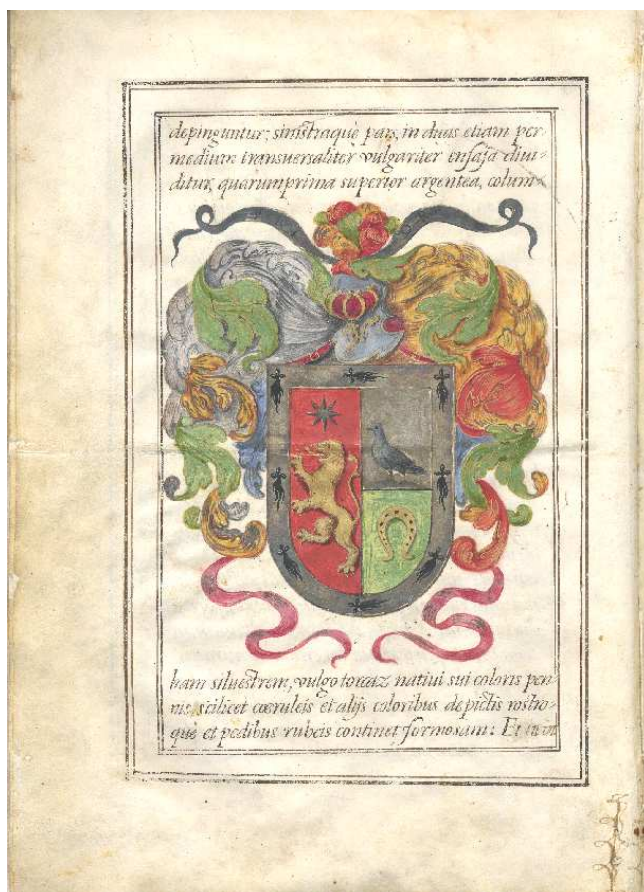 depinguntur; sinistraque pars, in duas etiam per
medium transversaliter vulgariter enfaja divi-
ditur, quarum prima superior argentea, colum-
bam silvestrem, vulgo torcaz nativi sui coloris pen
nis scilicet cœruleis et alijs coloribus depictis rostro-
que et pedibus rubeis continet formosam: Et in